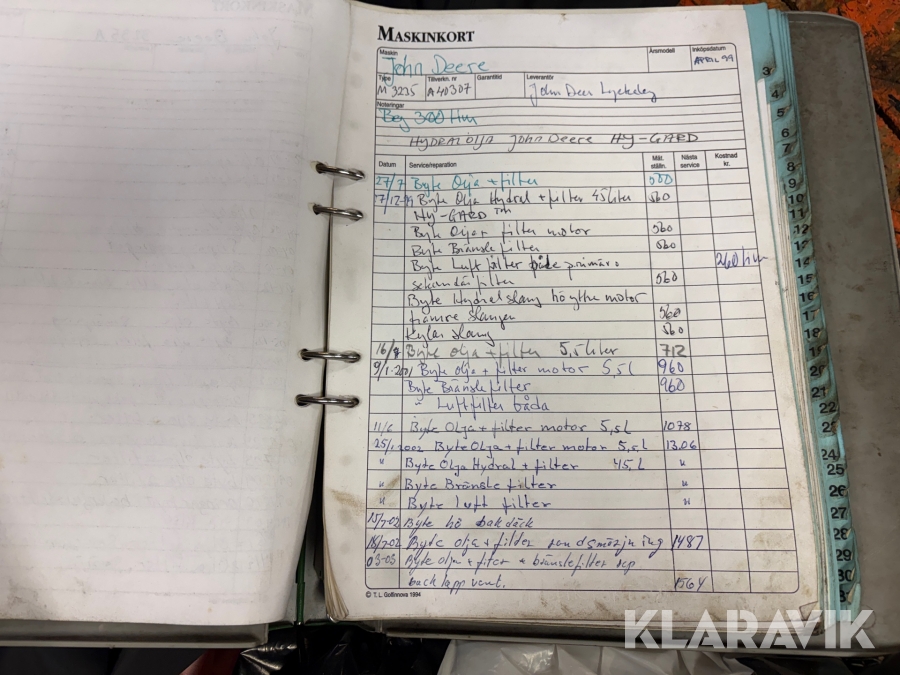 MASKINKORT
Maskin Årsmodell Inköpsdatum
John Deere APRIL 99
Type Tillverkn. nr Garantitid Leverantör
M 3235 A40307 John Deer
Noteringar
Beg 300 Hm
HYDRALOLJA JOHN DEERE HY-GARD
Datum Service/reparation Mät. ställn. Nästa service Kostnad kr.
27/7 Byte Olja + filter 500
Byte Olja Hydral + filter 45 liter 560
HY-GARD
Byte Olja + filter motor 560
Byte Bränsle filter 560
Byte Luft filter både primär o 260 hm
sekundär filter 560
Byte Hydralslang hö yttre motor
framre slangen 560
Kylar slang 560
16/8 Byte olja + filter 5,5 liter 712
9/1-2001 Byte olja + filter motor 5,5 L 960
Byte Bränslefilter 960
" Luftfilter båda
11/6 Byte Olja + filter motor 5,5 L 1078
25/1 2002 Byte Olja + filter motor 5,5 L 1306
" Byte Olja Hydral + filter 45 L "
" Byte Bränsle filter "
" Byte luft filter "
15/7-02 Byte hö bakdäck
18/7-02 Byte olja + filter rundsmörjning 1487
03-03 Byte olja + filter + bränslefilter rep
back lapp vent. 1564
© T. L. Golfinnova 1994
3
4
5
6
7
8
9
10
11
12
13
14
15
16
17
18
19
20
21
22
23
24
25
26
27
28
29
30
KLARAVIK